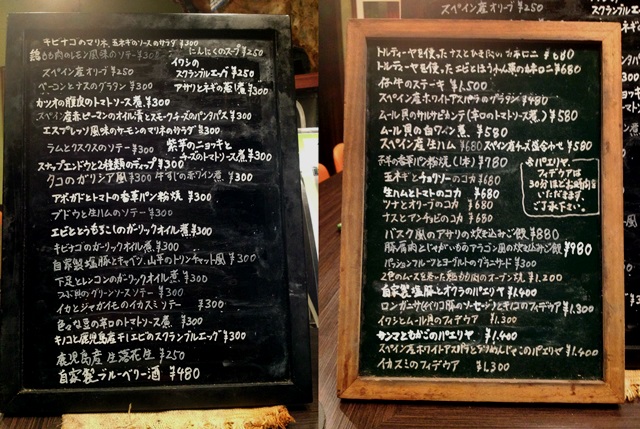 キビナゴのマリネ、玉ネギのソースのサラダ ¥300
鶏もも肉のレモン風味のソテー ¥300
にんにくのスープ ¥250
スペイン産オリーブ ¥250
イワシのスクランブルエッグ ¥250
ベーコンとナスのグラタン ¥300
アサリとネギの蒸し煮 ¥300
カツオの腹皮のトマトソース煮 ¥300
スペイン産赤ピーマンのオイル漬とスモークチーズのパンタパス ¥300
エスプレッソ風味のサーモンのマリネのサラダ ¥300
ラムとリスクスのソテー ¥300
紫芋のニョッキとチーズのトマトソース煮 ¥300
スナップエンドウと2種類のディップ ¥300
タコのガリシア風 ¥300
牛すじの赤ワイン煮 ¥300
アボガドとトマトの香草パン粉焼 ¥300
ブドウと生ハムのソテー ¥300
エビととうもろこしのガーリックオイル煮 ¥300
キビナゴのガーリックオイル煮 ¥300
自家製塩豚とキャベツ、山芋のトリンチャット風 ¥300
下足とレンコンのガーリックオイル煮 ¥300
つぶ貝のグリーンソースソテー ¥300
イカとジャガイモのイカスミソテー ¥300
色々な豆の辛口のトマトソース煮 ¥300
キノコと鹿児島産干しエビのスクランブルエッグ ¥300
鹿児島産 生落花生 ¥250
自家製ブルーベリー酒 ¥480
スペイン産オリーブ ¥250
トルティーヤを使ったナスとひき肉のカネロニ ¥680
トルティーヤを使ったエビとほうれん草のカネロニ ¥680
仔牛のステーキ ¥1,500
スペイン産ホワイトアスパラのグラタン ¥480
ムール貝のサルサピカンテ(辛口のトマトソース煮) ¥580
ムール貝の白ワイン煮 ¥580
スペイン産生ハム ¥680
スペイン産チーズ盛合わせ ¥580
子羊の香草パン粉焼(1本) ¥780
玉ネギとチョリソーのコカ ¥680
生ハムとトマトのコカ ¥680
ツナとオリーブのコカ ¥680
ナスとアンチョビのコカ ¥680
☆パエリヤ、
フィデウアは
30分ほどお時間を
いただきます。
ご了承下さい。
バスク風のアサリの炊き込みご飯 ¥880
豚肩肉とじゃがいものアラゴン風の炊き込みご飯 ¥980
パッションフルーツとヨーグルトのグラニサード ¥300
2色のムースを添った鶏もも肉のオーブン焼 ¥1,200
自家製塩豚とオクラのパエリヤ ¥1,400
ロンガニサ(イベリコ豚のソーセージ)とキノコのフィデウア ¥1,300
イワシとムール貝のフィデウア ¥1,300
サンマとむかごのパエリヤ ¥1,400
スペイン産ホワイトアスパラとちりめんじゃこのパエリヤ ¥1,400
イカスミのフィデウア ¥1,300